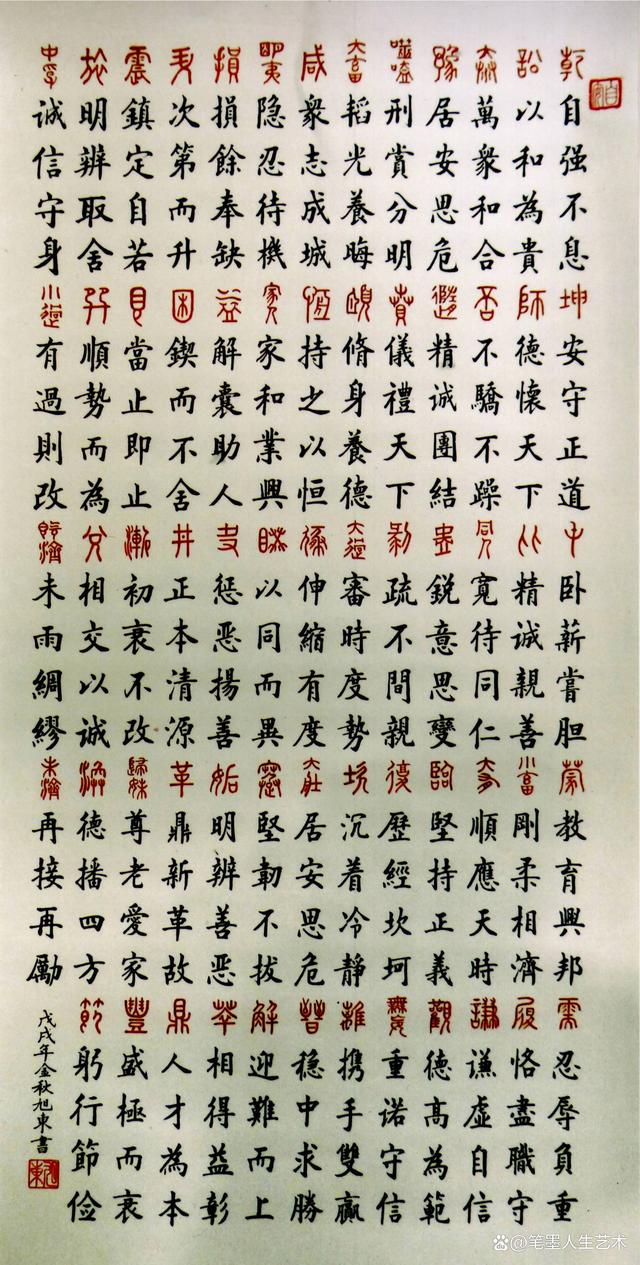 乾自强不息坤安守正道屯卧薪嘗胆蒙教育興邦需忍辱負重
訟以和為貴師德懷天下比精诚親善小畜剛柔相濟履恪盡職守
泰萬衆和合否不驕不躁同人寬待同仁大有順應天時謙謙虛自信
豫居安思危隨精诚團結蠱銳意思變臨堅持正義觀德高為範
噬嗑刑賞分明賁儀禮天下剥疏不間親復歷經坎坷無妄重诺守信
大畜韬光養晦頤脩身養德大過審時度勢坎沉着冷静離携手雙贏
咸衆志成城恆持之以恒遯伸縮有度大壯居安思危晉穩中求勝
明夷隐忍待機家人家和業興睽以同而異蹇堅韌不拔解迎難而上
損損餘奉缺益解囊助人夬惩恶揚善姤明辨善恶萃相得益彰
升次第而升困鍥而不舍井正本清源革鼎新革故鼎人才為本
震鎮定自若艮當止即止漸初衷不改歸妹尊老愛家豐盛極而衰
旅明辨取舍巽順勢而為兌相交以诚渙德播四方節躬行節俭
中孚诚信守身小過有過則改既濟未雨綢繆未濟再接再勵
戊戌年金秋旭東書
@笔墨人生艺术